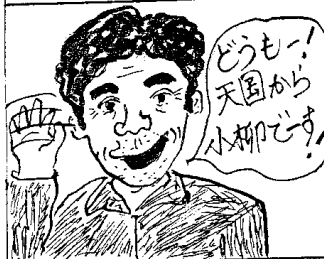 どうもー!
天国から
小柳でーす!